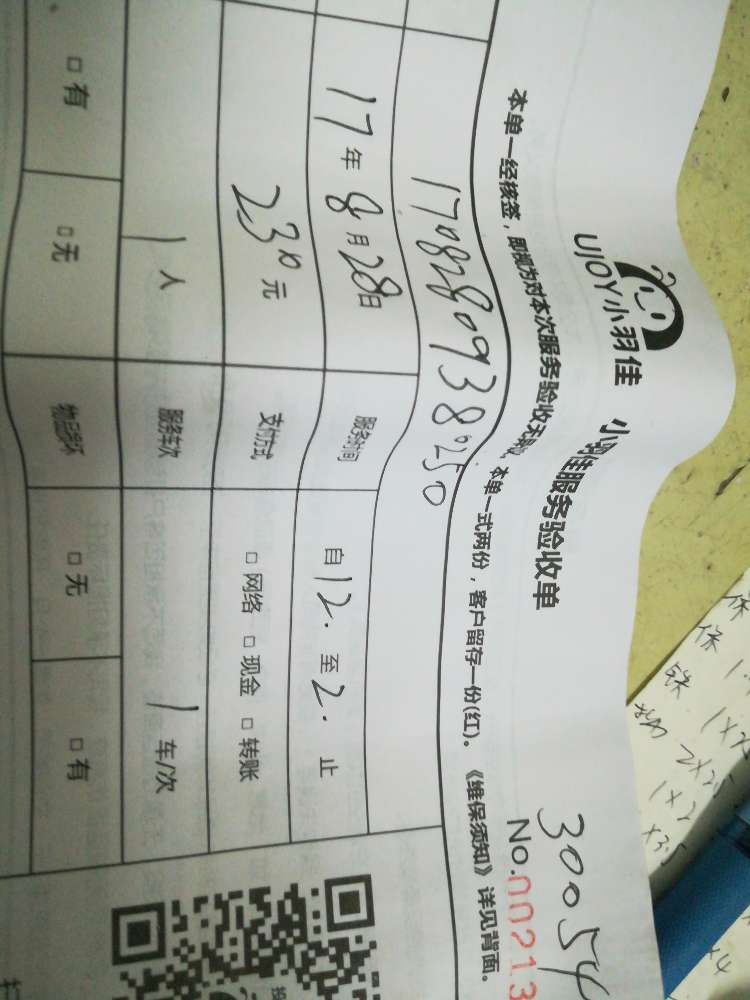 UJOY小羽佳 小羽佳服务验收单
30054
No.00213
本单一经核签，即视为对本次服务验收
本单一式两份，客户留存一份(红)。《维保须知》详见背面。
1708280938250
17年8月28日 服务时间 自12.至2.止
230元 支付方式 □网络 □现金 □转账
1人 服务车次 1车/次
□有 □无 物品损坏 □无 □有
保
保 1
1X
2X25
1X2
X35
X4